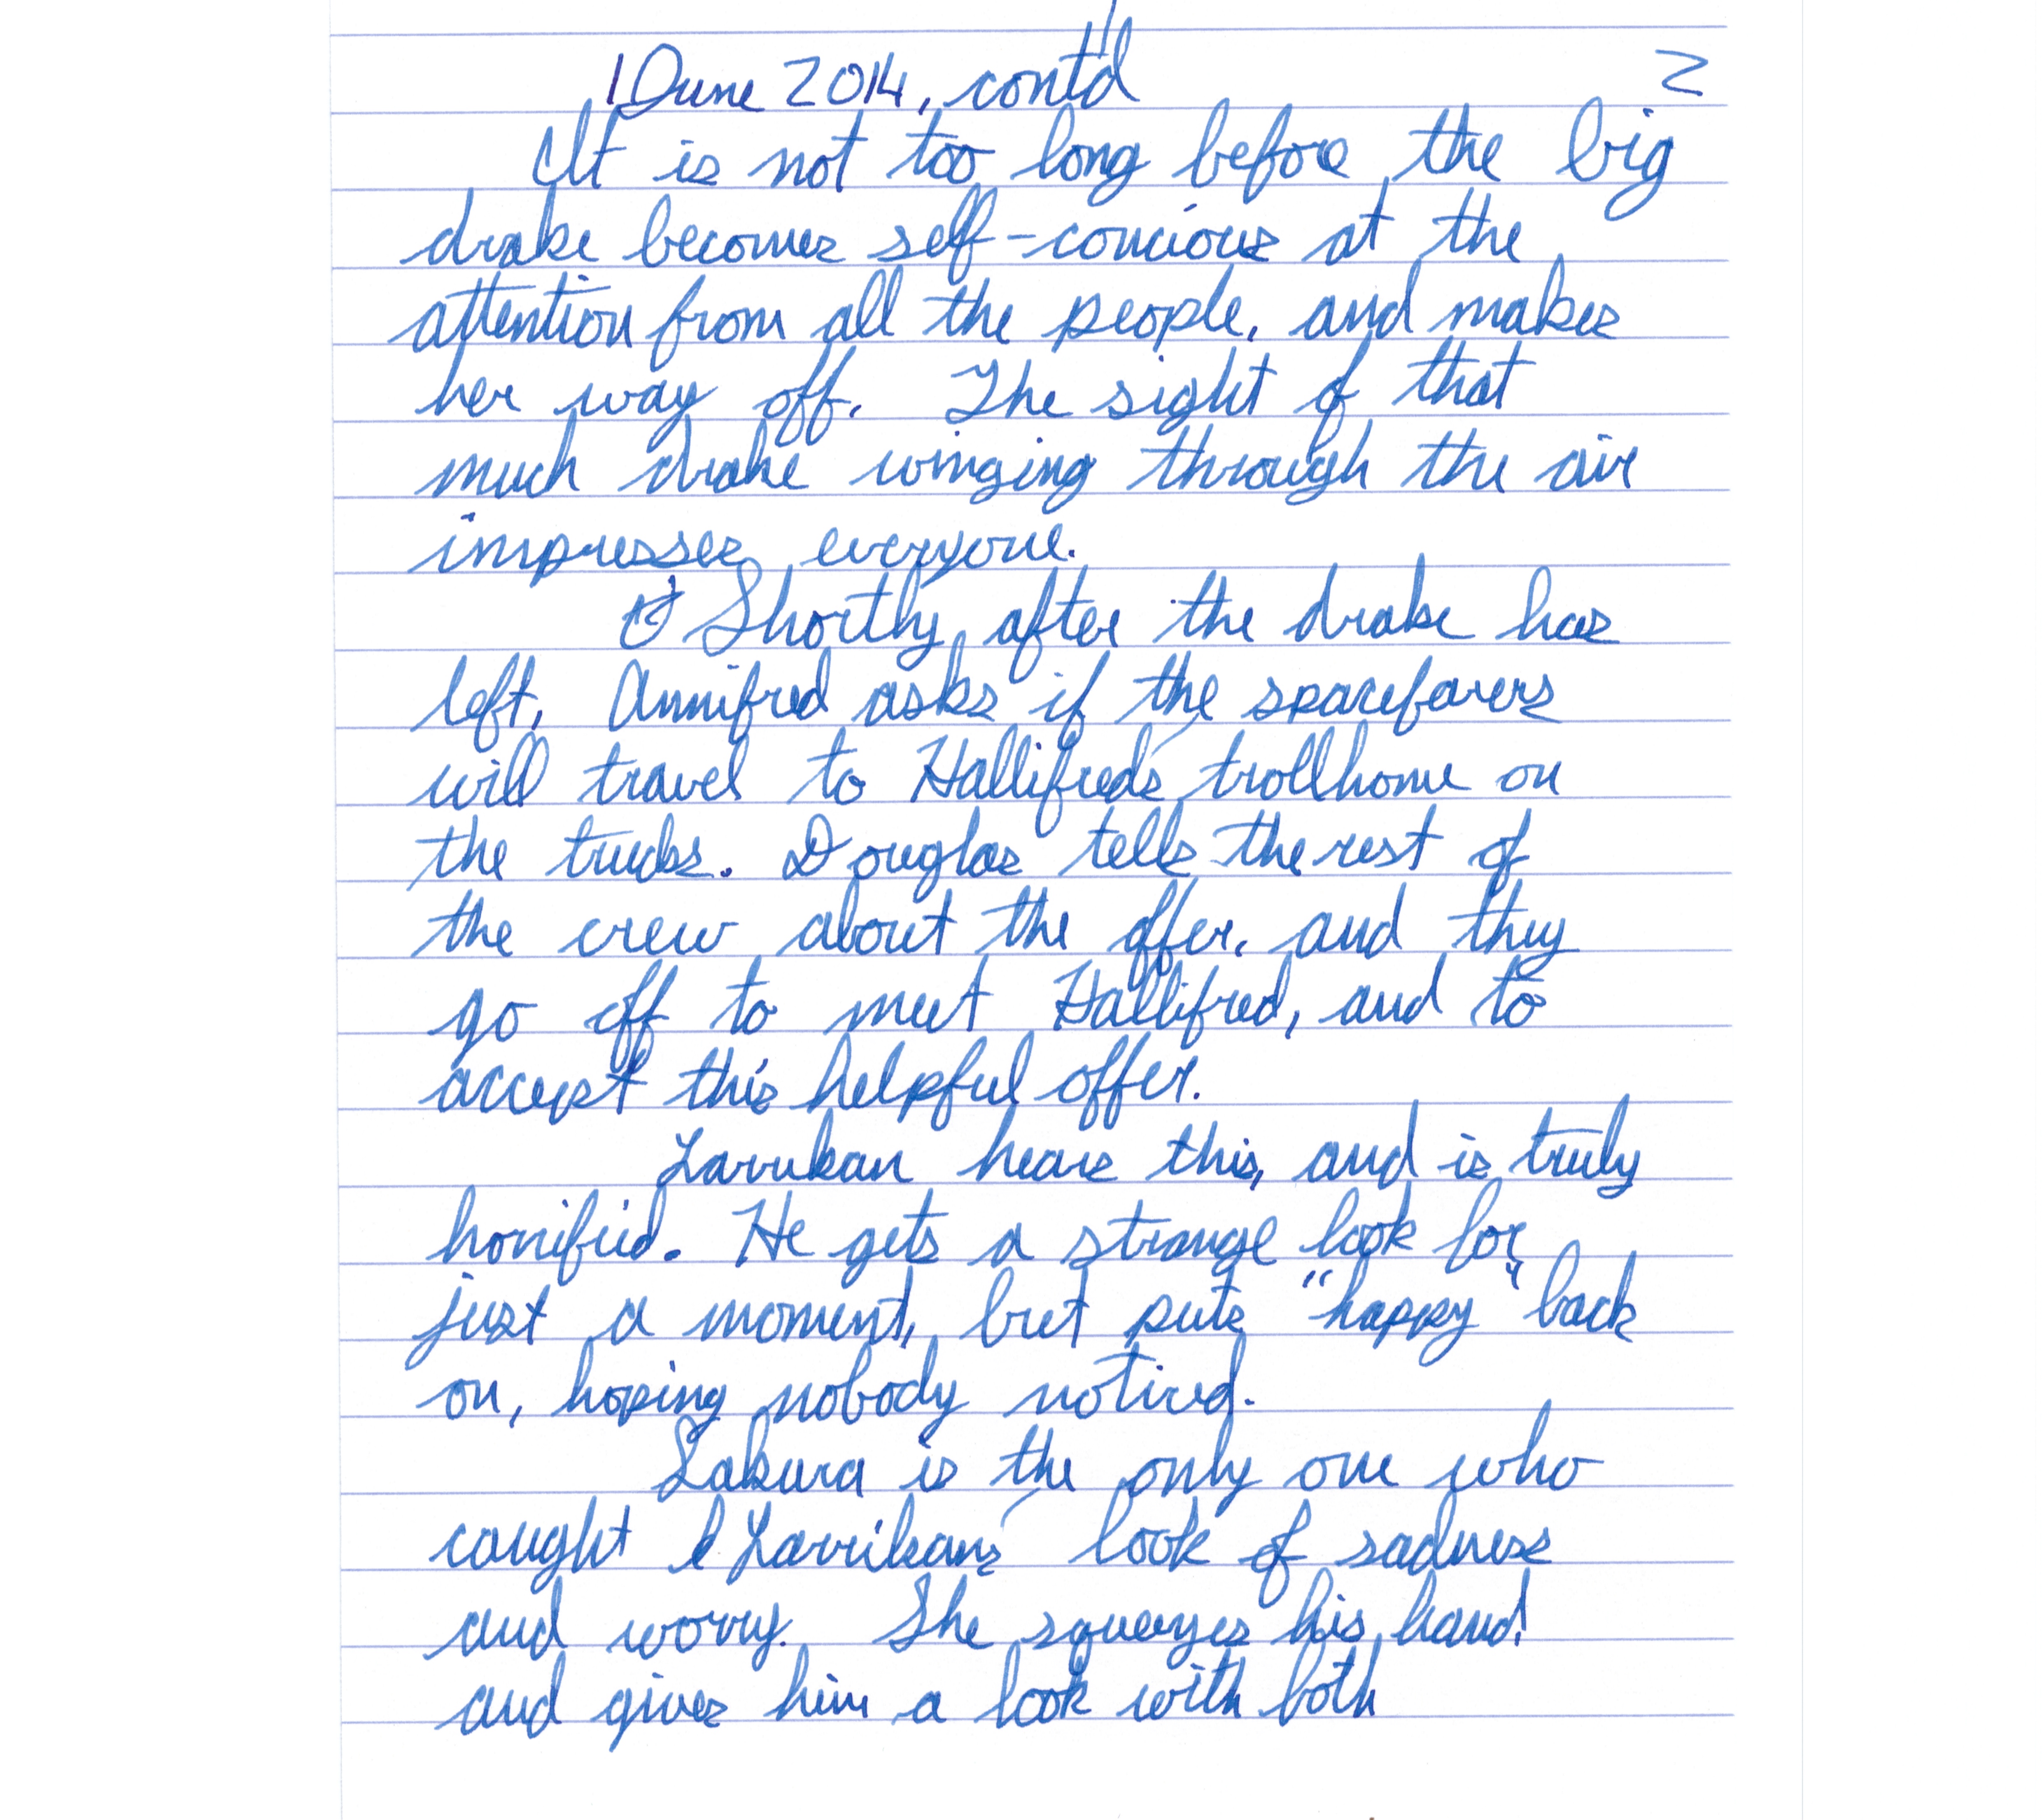 1 June 2014, contd 2
It is not too long before the big
drake becomes self-concious at the
attention from all the people, and makes
her way off. The sight of that
much drake winging through the air
impresses everyone.
Shortly after the drake has
left, Annifred asks if the spacefarers
will travel to Hallifred's trollhome on
the trucks. Douglas tells the rest of
the crew about the offer, and they
go off to meet Hallifred, and to
accept this helpful offer.
Larrikan hears this, and is truly
horrified. He gets a strange look for
just a moment, but puts "happy" back
on, hoping nobody noticed.
Sakura is the only one who
caught Larrikan's look of sadness
and worry. She squeezes his hand
and gives him a look with both